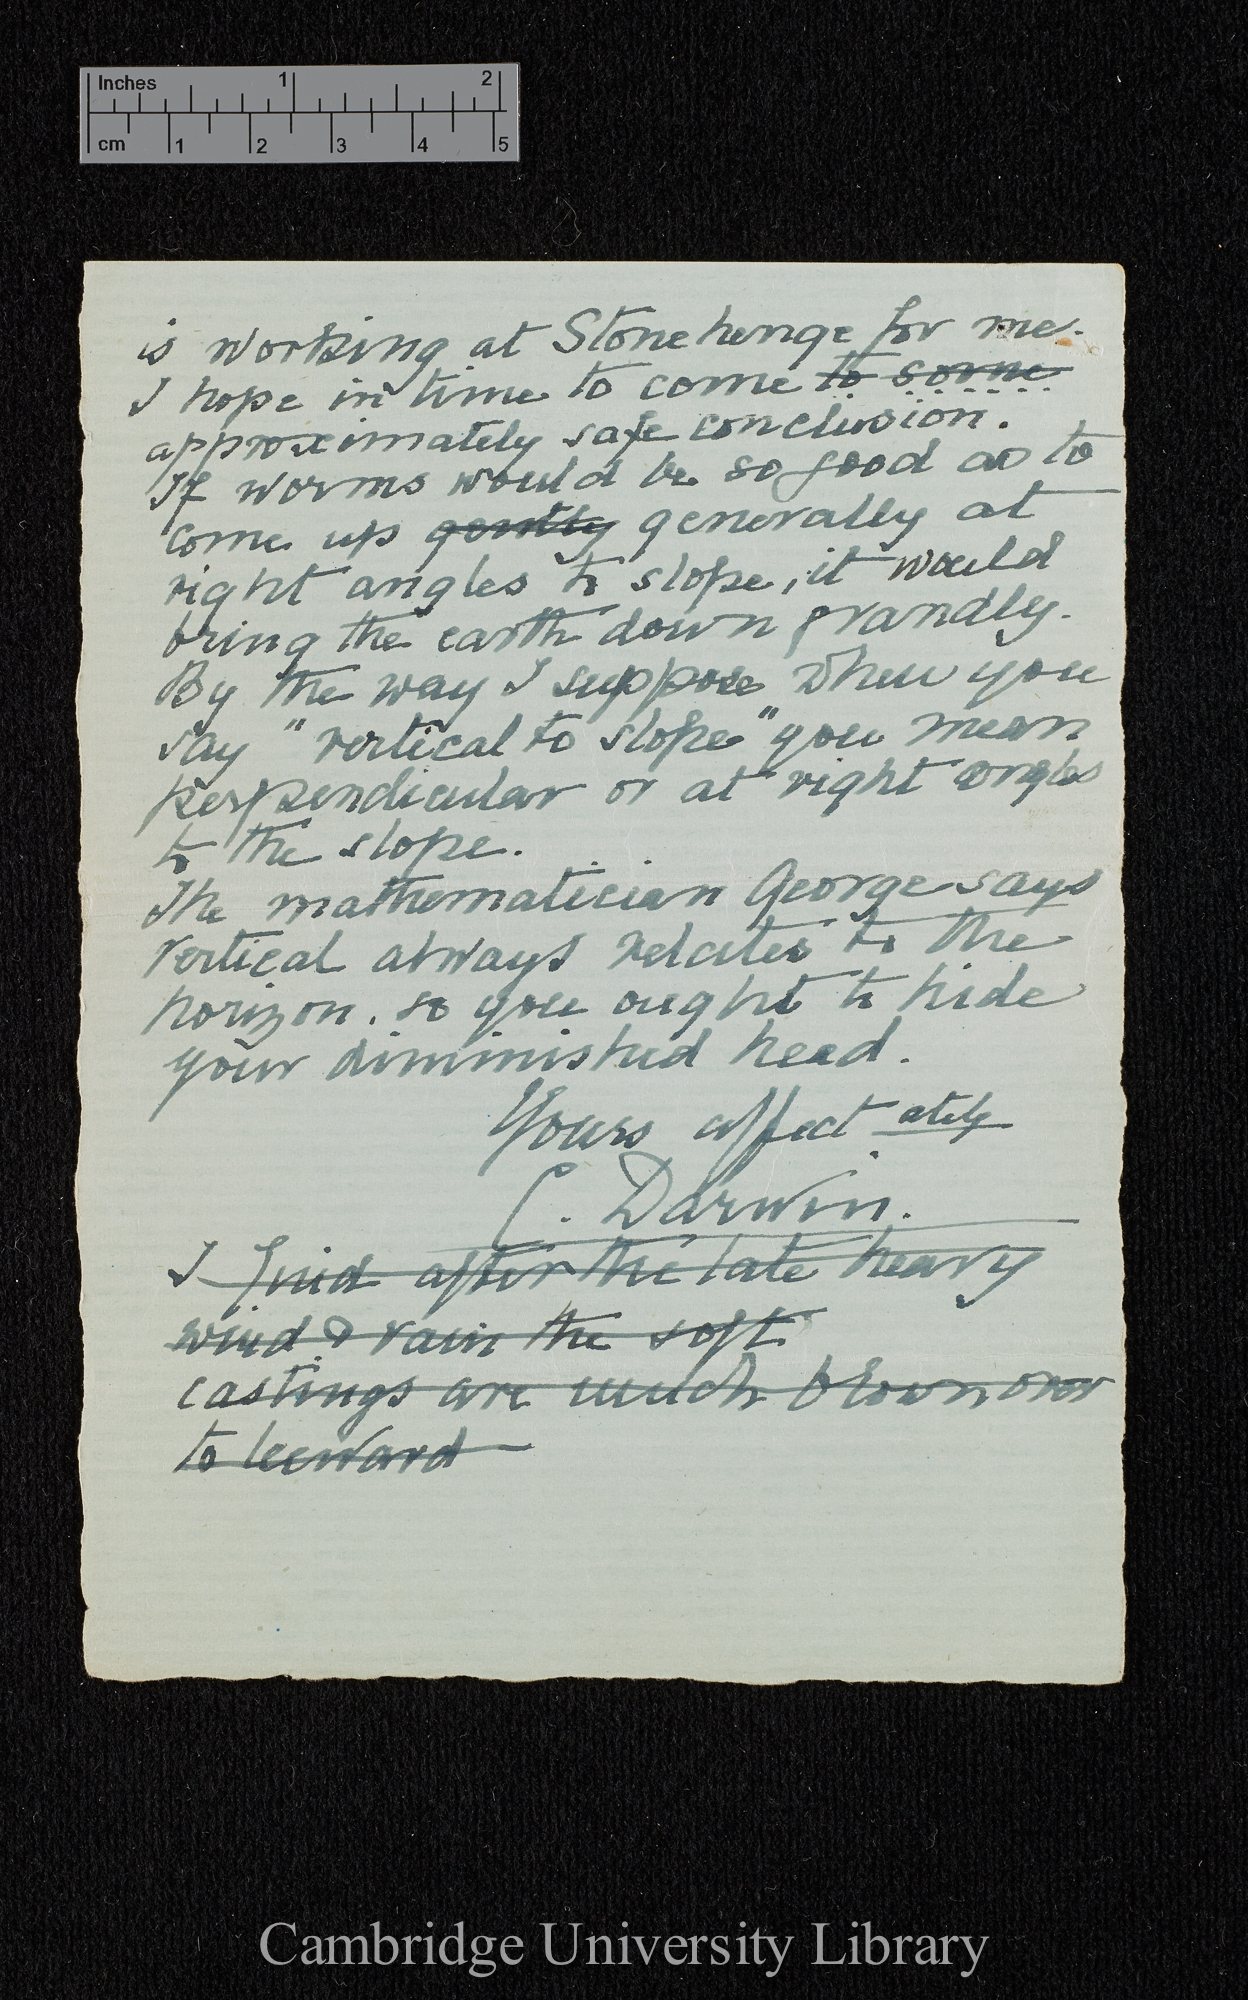 Inches 1 2
cm 1 2 3 4 5
is working at Stonehenge for me.
I hope in time to come to some
approximately safe conclusion.
If worms would be so good as to
come up gently generally at
right angles to slope, it would
bring the earth down grandly.
By the way I suppose when you
say "vertical to slope" you mean
perpendicular or at right angles
to the slope.
The mathematician George says
vertical always relates to the
horizon. so you ought to hide
your diminished head.
Yours affectately
C. Darwin.
I find after the late heavy
wind & rain the soft
castings are much blown over
to leeward
Cambridge University Library